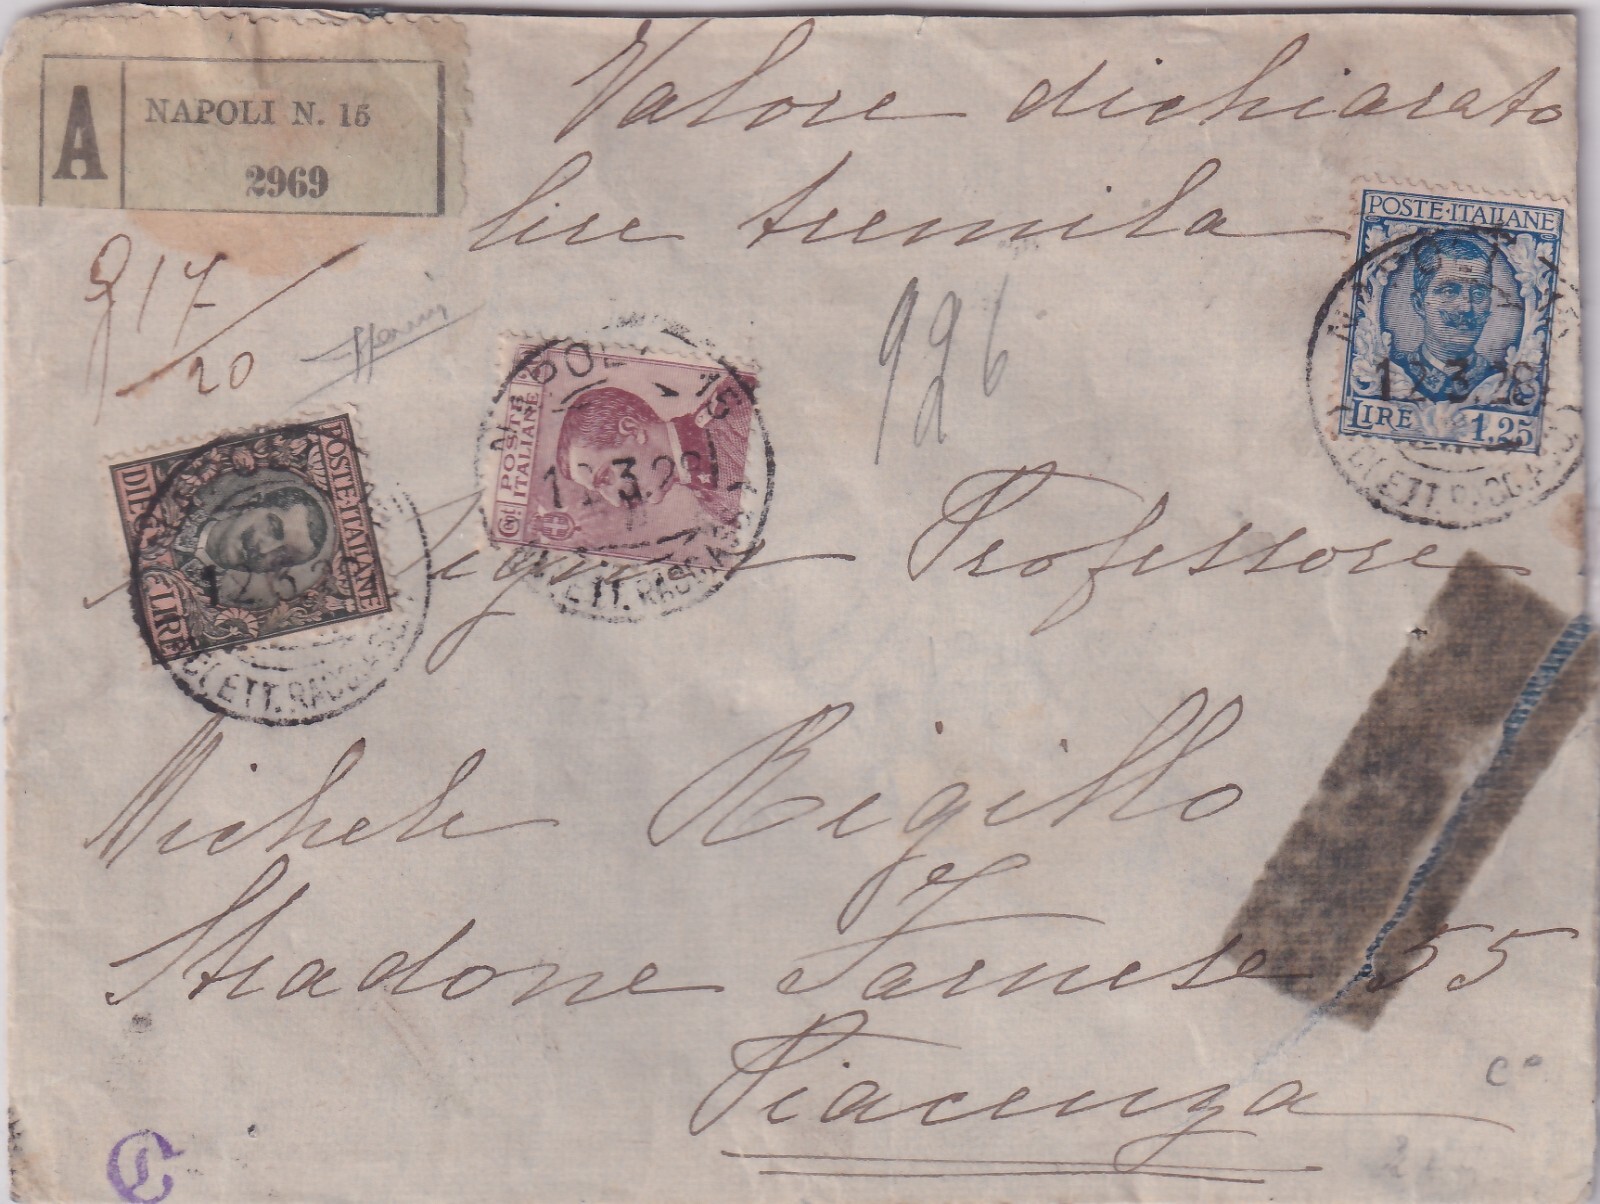 A
NAPOLI N. 15
2969
Valore dichiarato
lire tremila
g 17
20
996
POSTE·ITALIANE
LIRE 1,25
NAPOLI
12.3.28
ETT. RACC. ASSIC
POSTE
ITALIANE
Cent
NAPOLI 15
12.3.28
ETT. RACC. ASS
POSTE·ITALIANE
DIECI LIRE
12.3.2
ETT. RACC. ASS
Signor Professore
Michele Rigillo
Stradone Farnese 55
Piacenza